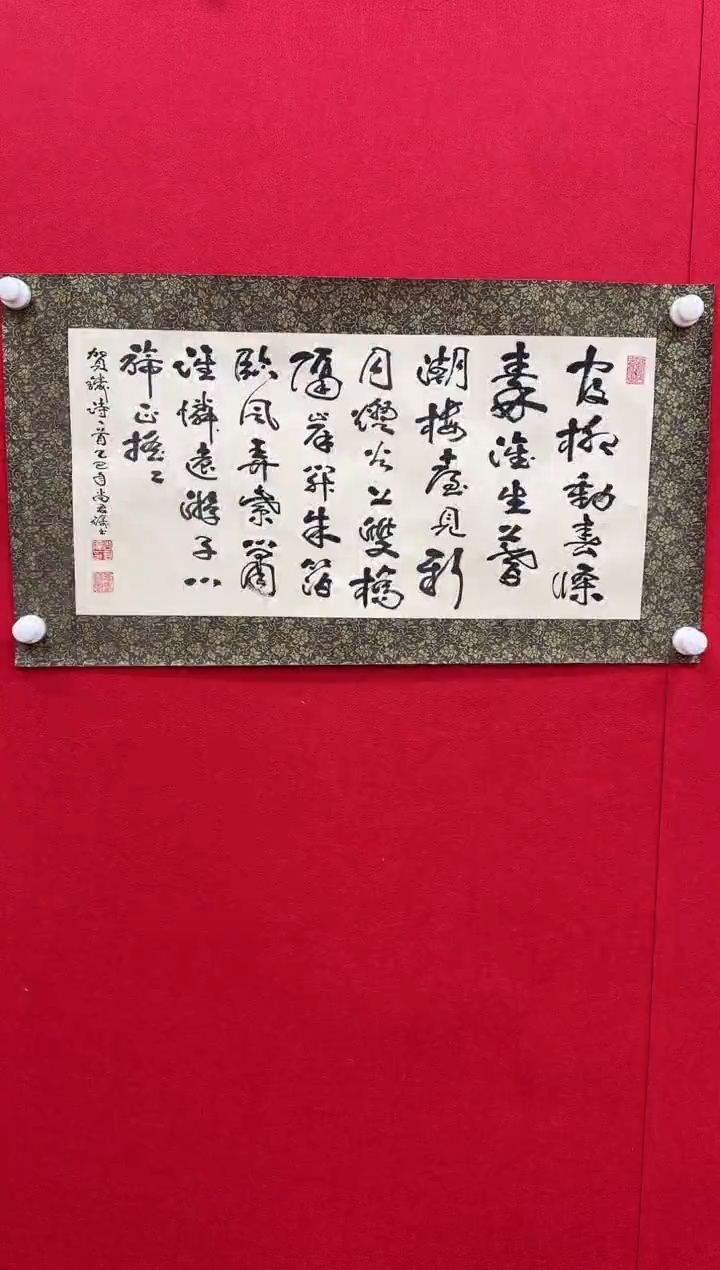 官柳動春條
秦淮生暮
潮樓臺見新
月燈火上雙橋
隔岸開朱箔
臨風弄紫簫
誰憐遠游子心
旆正搖々
賀鑄詩一首乙巳年尚書